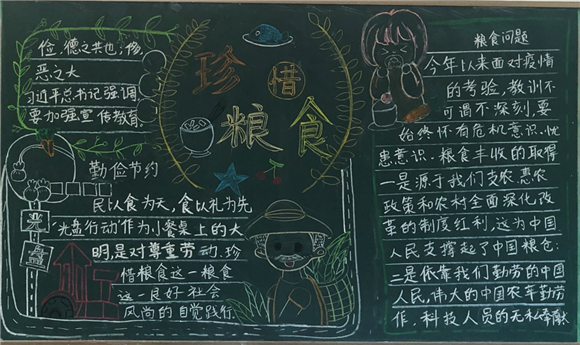 俭，德之共也；侈，
恶之大
习近平总书记强调
要加强宣传教育，
珍惜
粮食
勤俭节约
民以食为天，食以礼为先
“光盘行动”作为小餐桌上的大
明，是对尊重劳动、珍
惜粮食这一粮食
这一良好社会
风尚的自觉践行
光
盘
粮食问题
今年以来面对疫情
的考验，教训不
可谓不深刻，要
始终怀有危机意识、忧
患意识．粮食丰收的取得
一是源于我们支农、惠农
政策和农村全面深化改
革的制度红利，这为中国
人民支撑起了中国粮仓；
二是依靠我们勤劳的中国
人民，伟大的中国农车勤劳
作，科技人员的无私奉献